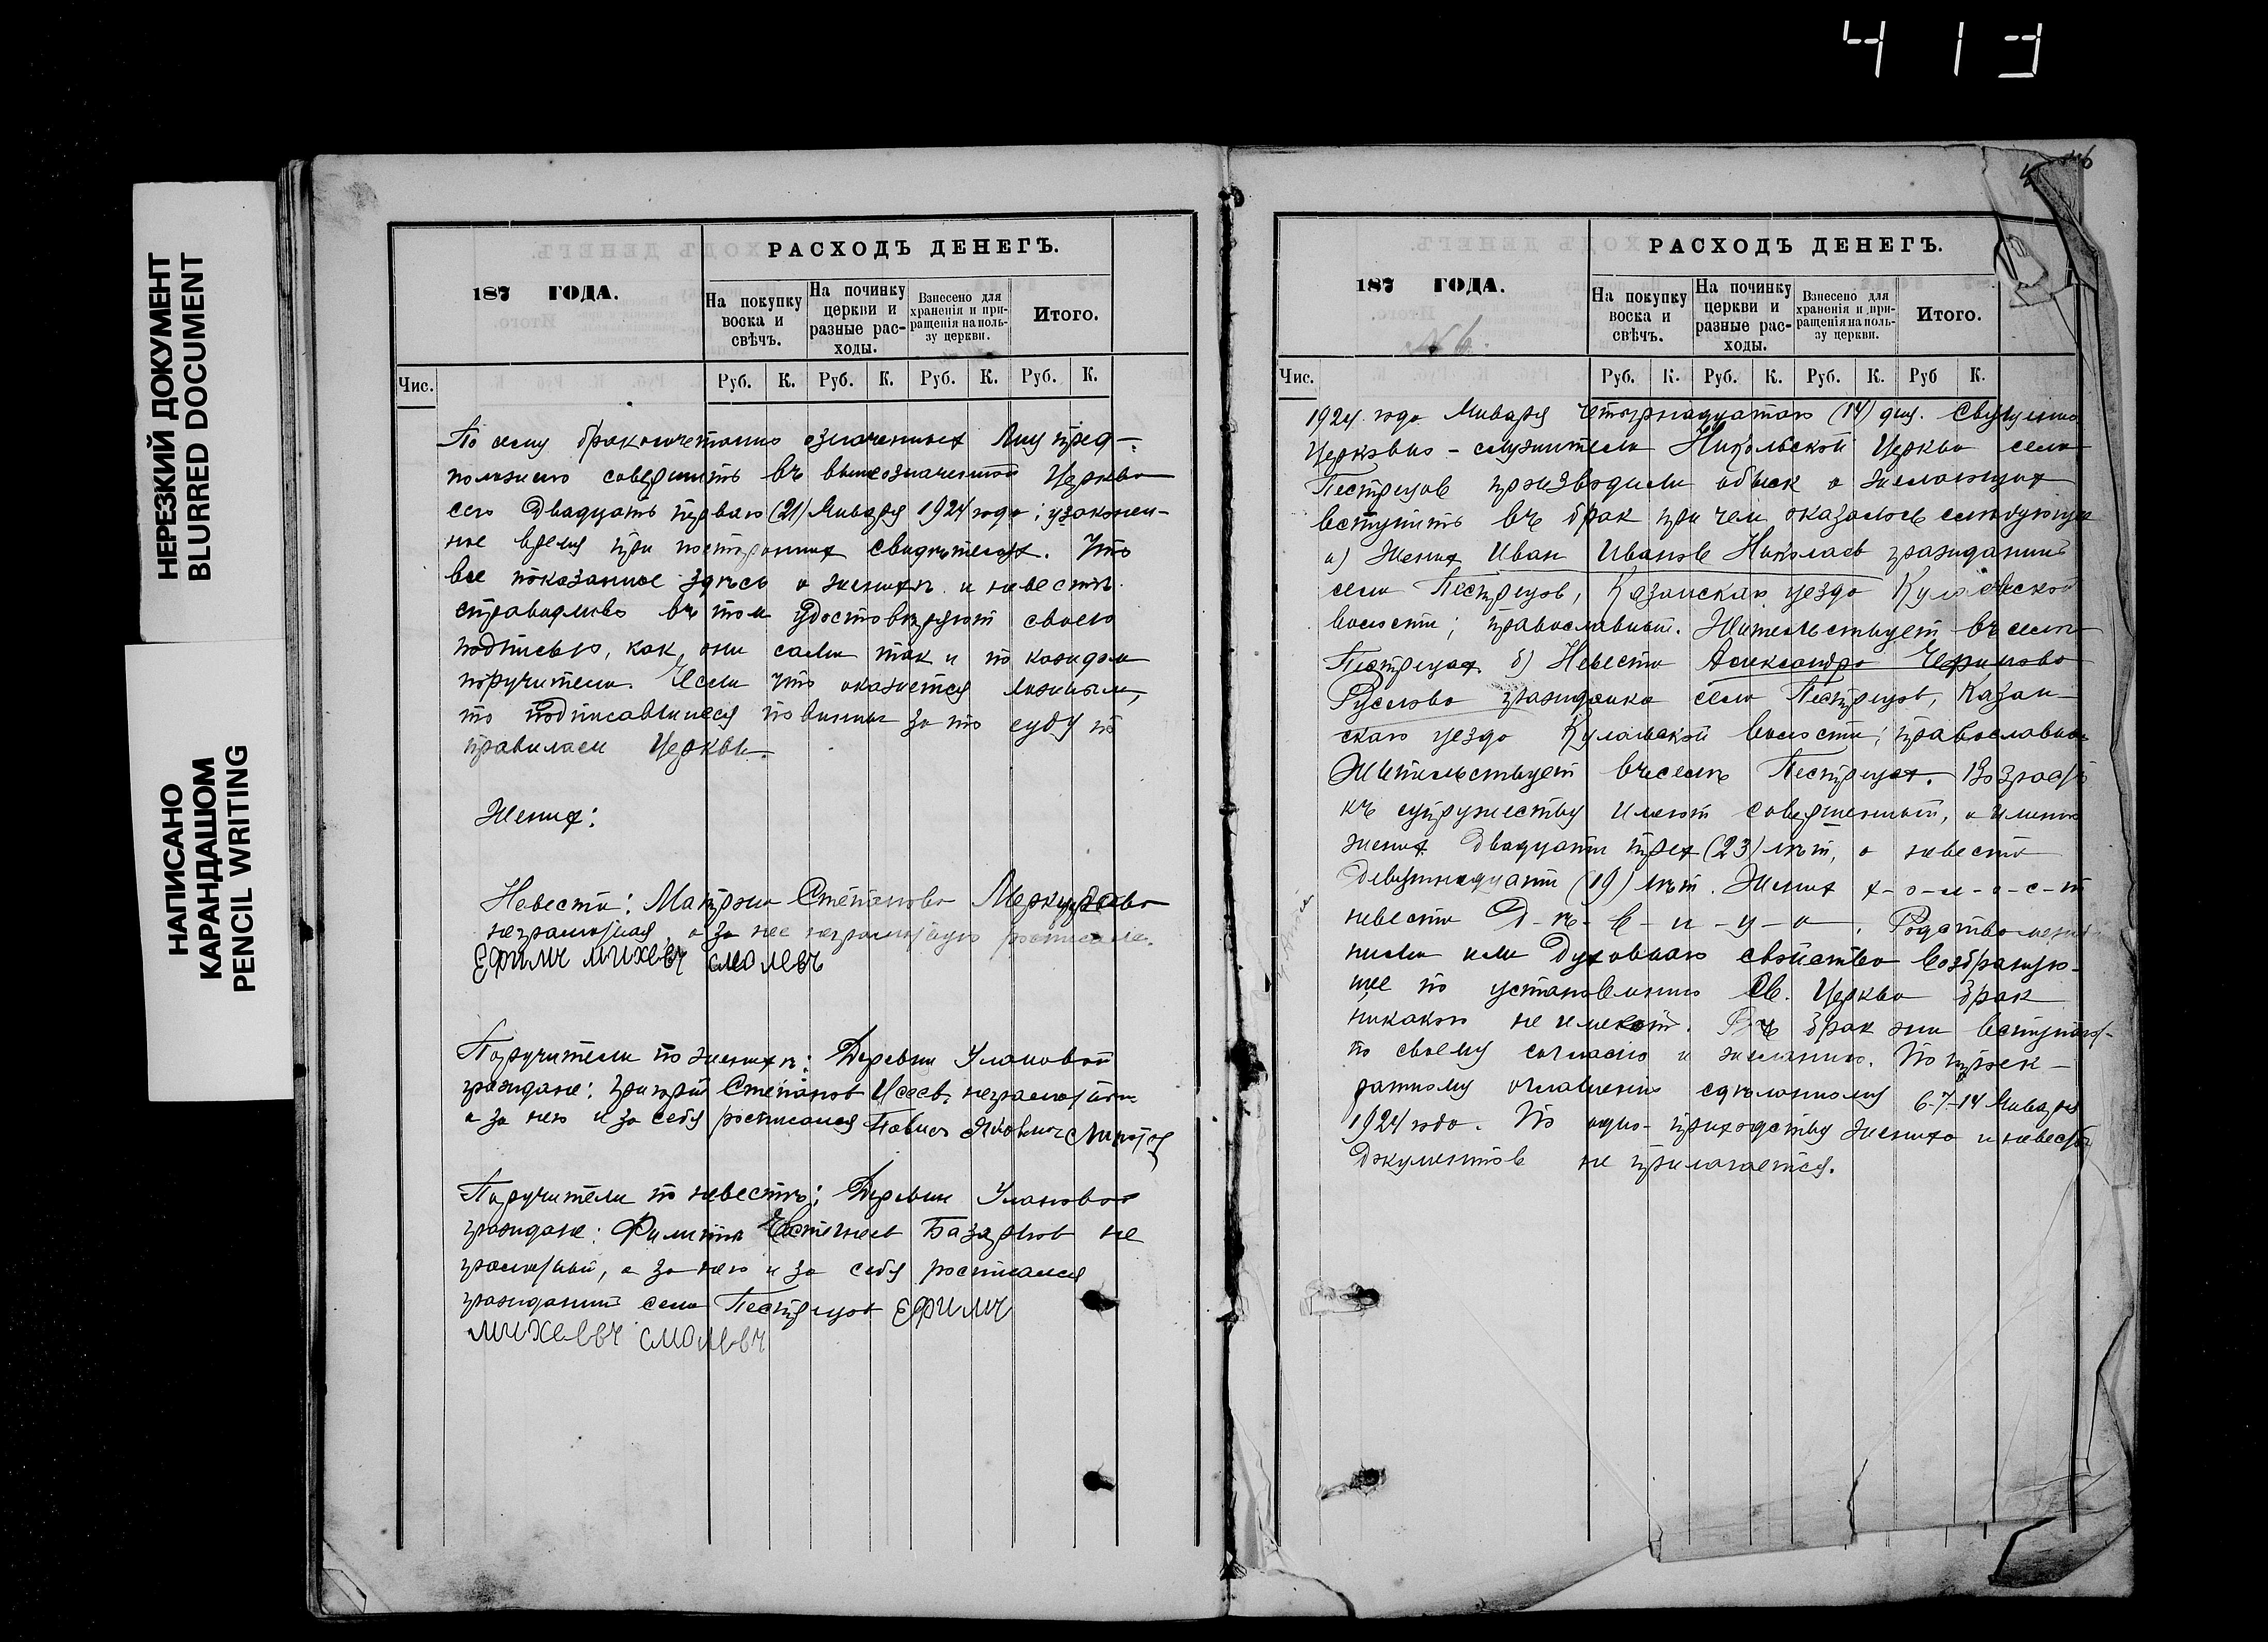 4 1 9
НЕРЕЗКИЙ ДОКУМЕНТ
BLURRED DOCUMENT
НАПИСАНО
КАРАНДАШОМ
PENCIL WRITING
187 ГОДА.
РАСХОДЪ ДЕНЕГЪ.
На покупку воска и свѣчъ.
На починку церкви и разные рас-ходы.
Взнесено для храненія и при-ращенія на поль-зу церкви.
Итого.
Чис.
Руб. К. Руб. К. Руб. К. Руб. К.
По сему бракосочетанию означенных лиц пред-
положено совершить въ вышеозначенной Церкви
сего Двадцать перваго (21) Января 1924 года; узаконен-
ное время при посторонних свидѣтелях. Что
все показанное здѣсь о женихѣ и невестѣ
справедливо въ том удостоверяют своею
подписью, как они сами так и по каждом
поручители. Если что окажется ложным,
то подписавшиеся повинны за то суду по
правилам Церкви.
Жених:
Невеста: Матрона Степанова Меркурьева
неграмотная, а за нее неграмотную росписался
Ефимъ михеевъ смолевъ
Поручители по женихѣ: Деревни Улановой
граждане: Григорий Степанов Исаев неграмотный
а за него и за себя росписался Павел
Поручители по невестѣ: Деревни Улановой
граждане: Филипп Евстегнеев Базяров не
грамотный, а за него и за себя росписался
гражданин села Пестрецов Ефимъ
михеевъ смолевъ
187 ГОДА.
РАСХОДЪ ДЕНЕГЪ.
№ 6.
На покупку воска и свѣчъ.
На починку церкви и разные рас-ходы.
Взнесено для храненія и при-ращенія на поль-зу церкви.
Итого.
Чис.
Руб. К. Руб. К. Руб. К. Руб К.
1924 года Января четырнадцатаго (14) дня.
Церковно-служители Никольской Церкви села
Пестрецов производили обыск о желающих
вступить въ брак при чем оказалось следующее
а) Жених Иван Иванов Николаев гражданин
села Пестрецов, Казанскаго уезда Кулаевской
волости; православный. Жительствует въ селе
Пестрецах б) Невеста Александра
Руслова гражданка села Пестрецов, Казан-
скаго уезда Кулаевской волости; православная
Жительствует въ селѣ Пестрецах. Возраст
къ супружеству имеют совершенный, а именно
жених двадцати трех (23) лѣт, а невеста
Девятнадцати (19) лѣт. Жених х-о-л-о-с-т
невеста Д-ѣ-в-и-ц-а. Родства
или духовнаго свойства возбраняю-
щее по установлению Св. Церкви брак
никакого не имеют. Въ брак они вступают
по своему согласию и желанию. По трое-
кратному оглашению сдѣланному 6-7-14 Января
1924 года. По одно-приходству жениха и невесты
Документов не прилагается.